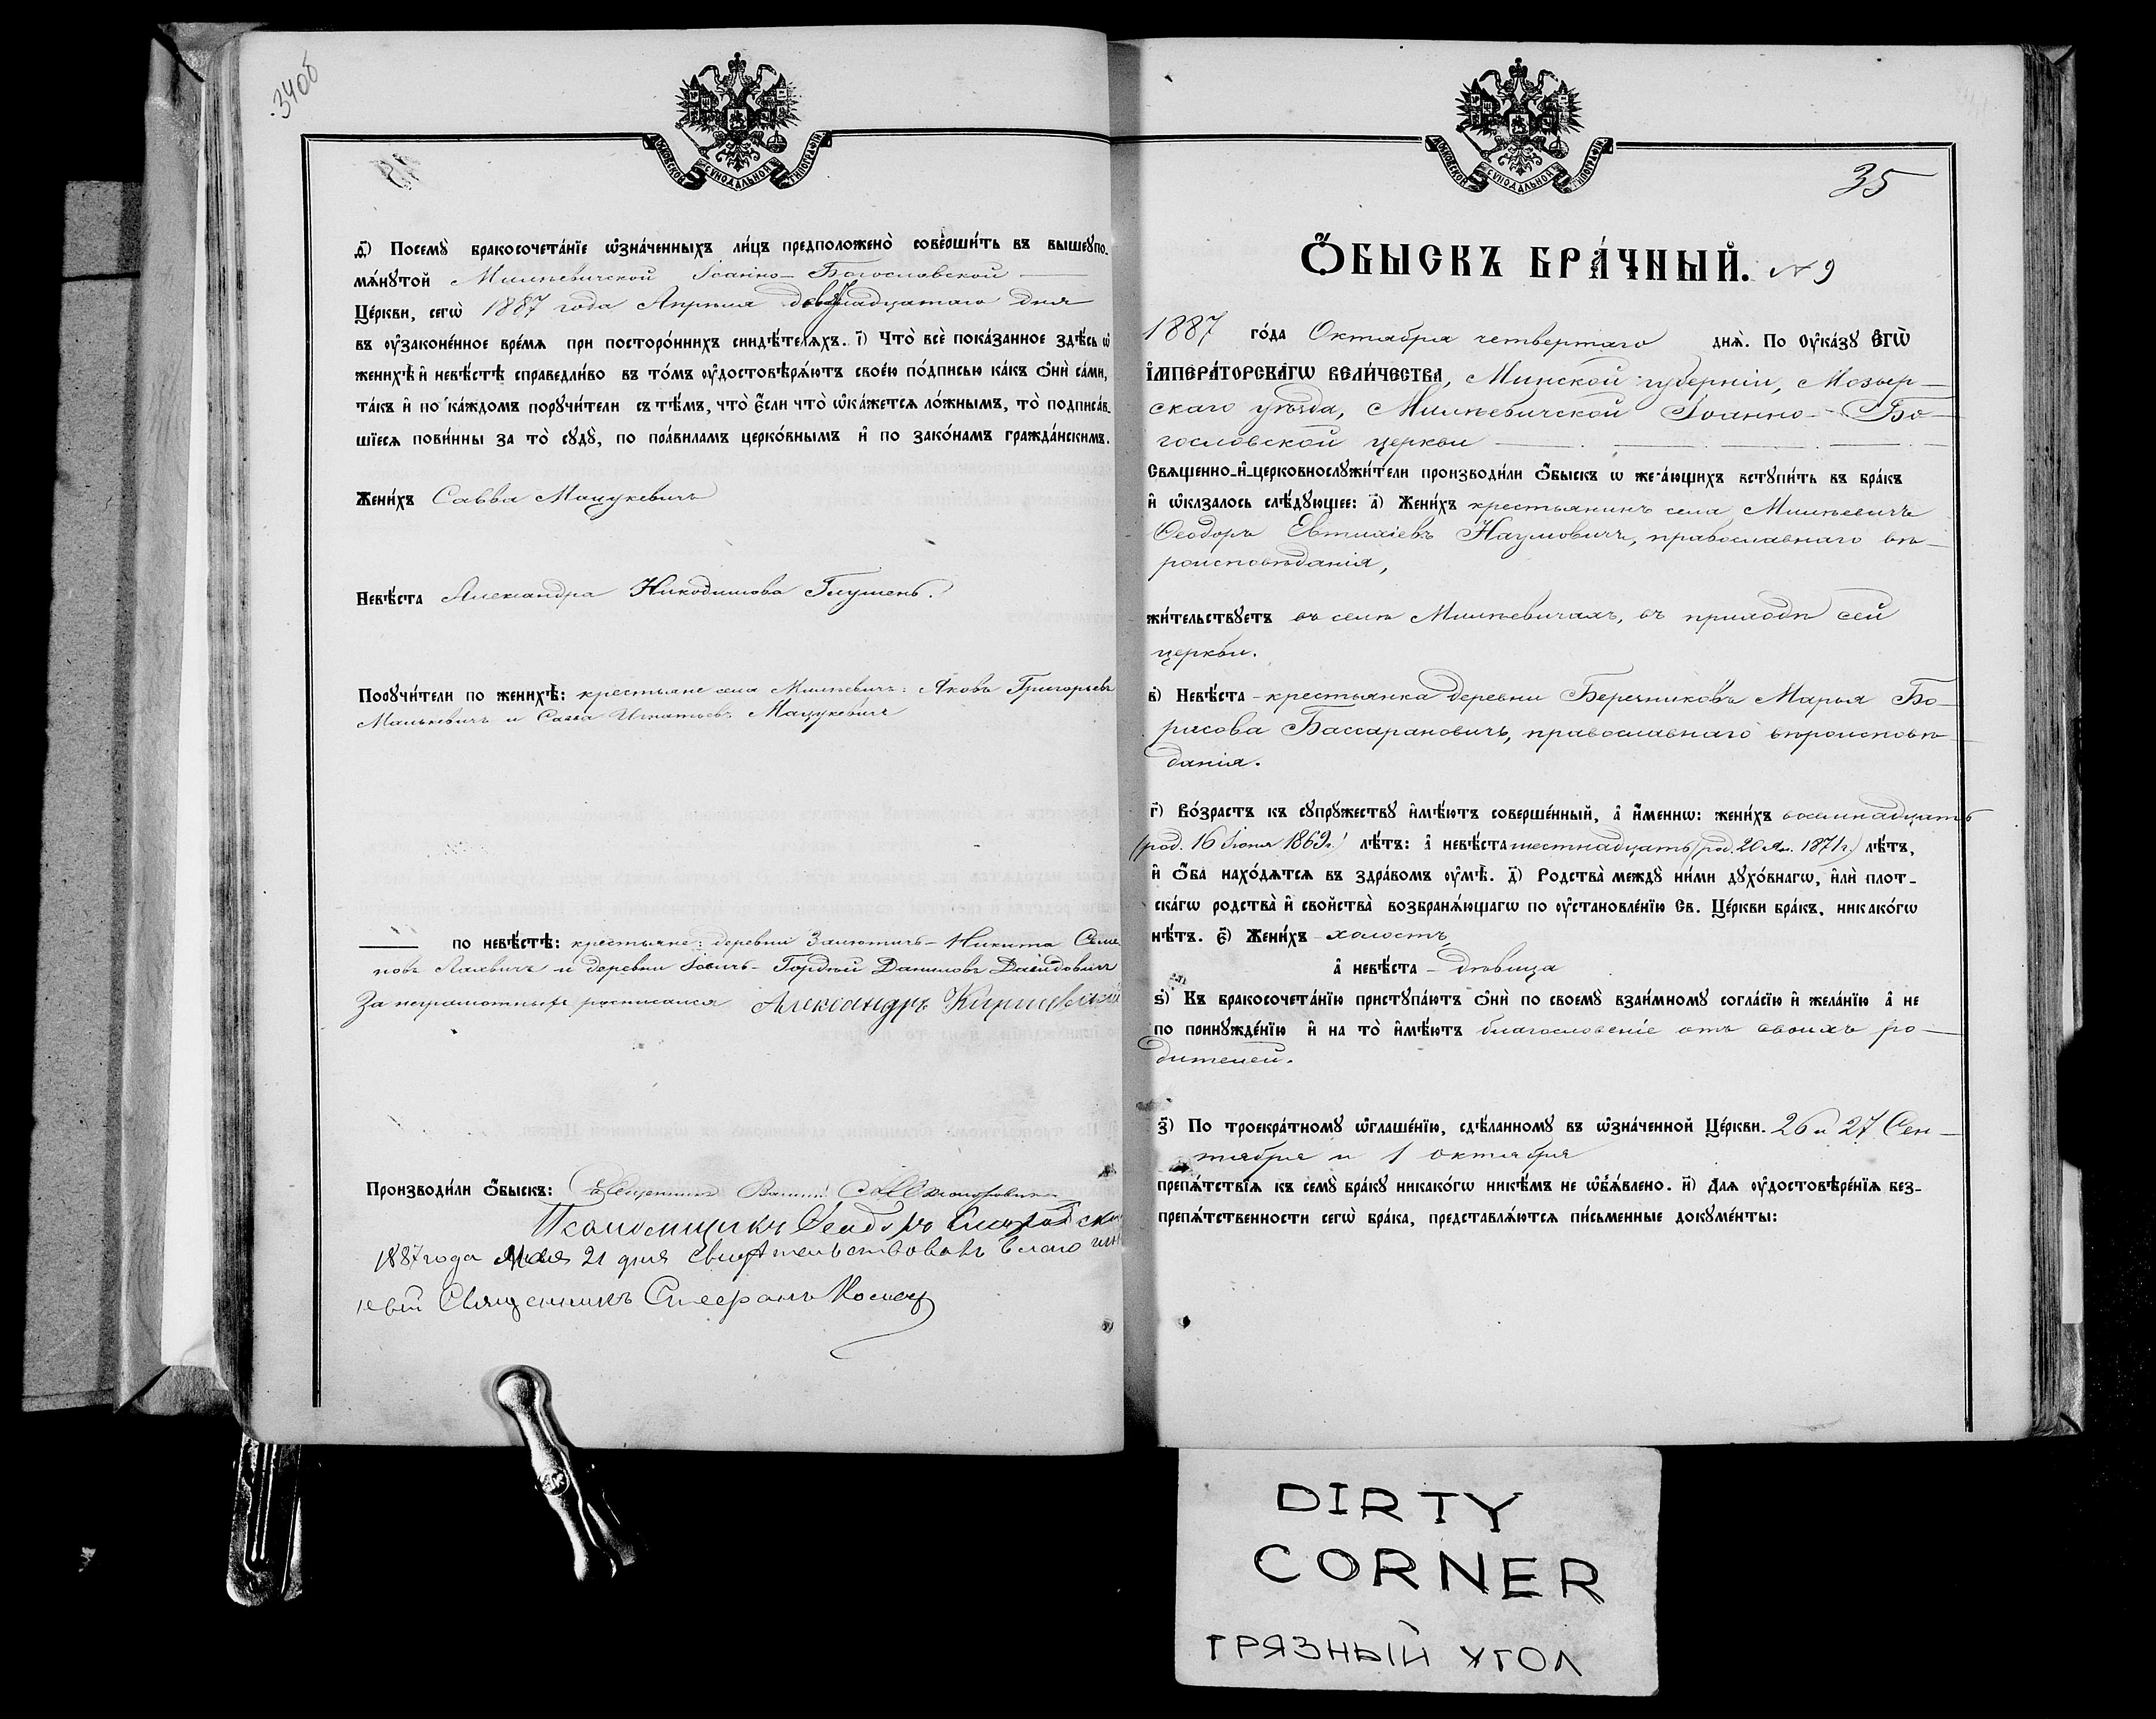 34об
МОСКОВСКОЙ СѴНОДАЛЬНОЙ ТИПОГРАФІИ
д҃) Посемꙋ̀ бракосочета́нїе ѡ҆зна́ченныхъ ли́цъ предположено̀ соверши́ть въ вышеꙋпо-
мѧ́нꙋтой Милевичской Іоанно-Богословской
Це́ркви, сегѡ̀ 1887 года Апрѣля двѣнадцатаго дня
въ ᲂу҆зако́ненное вре́мѧ при посторо́ннихъ свидѣ́телѧхъ. і҃) Что̀ всѐ пока́занное здѣ́сь ѡ҆
женихѣ̀ и҆ невѣ́стѣ справедли́во въ то́мъ ᲂу҆достовѣрѧ́ютъ свое́ю по́дписью ка́къ ѻ҆нѝ са́ми,
та́къ и҆ по ка́ждомъ порꙋчи́тели съ тѣ́мъ, что̀ є҆́сли что̀ ѡ҆ка́жетсѧ ло́жнымъ, то̀ подписа́в-
шїесѧ пови́нны за то̀ сꙋдꙋ̀, по пра́виламъ церко́внымъ и҆ по зако́намъ гражда́нскимъ.
Жени́хъ Савва Мацукевичъ
Невѣ́ста Александра Никодимова Глушень.
Порꙋчи́тели по женихѣ̀: крестьяне села Милевичъ: Яковъ Григорьевъ
Малькевичъ и Савва Игнатьевъ Мацукевичъ
по невѣ́стѣ: крестьяне: деревни Залютичъ - Никита Семе
новъ Лахвичъ и деревни - Гордѣй Даниловъ Давидовичъ
За неграмотныхъ росписался Александръ
Производи́ли ѻ҆́быскъ: Священникъ
Псаломщикъ Ѳеодоръ
1887 года Мая 21 дня свидѣтельствовалъ благочин
Священникъ
МОСКОВСКОЙ СѴНОДАЛЬНОЙ ТИПОГРАФІИ
35
Ѻ҆́БЫСКЪ БРА́ЧНЫЙ. № 9
1887 го́да Октября четвертаго днѧ̀. По Оу҆ка́зꙋ Є҆ГѠ̀
І҆МПЕРА́ТОРСКАГѠ ВЕЛИ́ЧЕСТВА, Минской губерніи, Мозыр-
скаго уѣзда, Милевичской Іоанно-Бо-
гословской церкви
Свѧщенно-и҆-церковнослꙋжи́тели производи́ли ѻ҆́быскъ ѡ жела́ющихъ встꙋпи́ть въ бра́къ
и҆ ѡ҆казалось слѣ́дꙋющее: а҃) Жени́хъ крестьянинъ села Милевичъ
Ѳеодоръ Евтихіевъ Наумовичъ, православнаго вѣ-
роисповѣданія,
жи́тельствꙋетъ въ селѣ Милевичахъ, въ приходѣ сей
церкви.
в҃) Невѣ́ста - крестьянка деревни Беречниковъ Марья Бо-
рисова Бассарановичъ, православнаго вѣроисповѣ-
данія.
г҃) Во́зрастъ къ сꙋпрꙋ́жествꙋ и҆мѣ́ютъ соверше́нный, а҆ и҆́меннѡ: жени́хъ восемнадцать
(род. 16 Іюня 1869 г.) лѣ́тъ: а҆ невѣ́ста шестнадцать (род. 20 Ян. 1871 г.) лѣ́тъ,
и҆ ѻ҆́ба нахо́дѧтсѧ въ здра́вомъ ᲂу҆мѣ̀. д҃) Родства̀ междꙋ̀ ни́ми дꙋхо́внагѡ, и҆лѝ плот-
скагѡ родства̀ и҆ свойства̀ возбранѧ́ющагѡ по ᲂу҆становле́нїю Св. Це́ркви бра́къ, никако́гѡ
нѣ́тъ. є҃) Жени́хъ - холостъ,
а҆ невѣ́ста - дѣвица
ѕ҃) Къ бракосочета́нїю пристꙋпа́ютъ ѻ҆нѝ по своемꙋ̀ взаи́мномꙋ согла́сїю и҆ жела́нїю а҆ не
по принꙋжде́нїю и҆ на то̀ и҆мѣ́ютъ благословеніе отъ своихъ ро-
дителей.
з҃) По троекра́тномꙋ ѡ҆глаше́нїю, сдѣ́ланномꙋ въ ѡ҆зна́ченной Це́ркви. 26 и 27 Сен-
тября и 1 октября
препѧ́тствїѧ къ семꙋ̀ бра́кꙋ никако́гѡ никѣ́мъ не ѡ҆б̾ѧ́влено. и҃) Длѧ ᲂу҆достовѣре́нїѧ без-
препѧ́тственности сегѡ̀ бра́ка, представлѧ́ютсѧ пи́сьменные докꙋме́нты:
DIRTY
CORNER
ГРЯЗНЫЙ УГОЛ